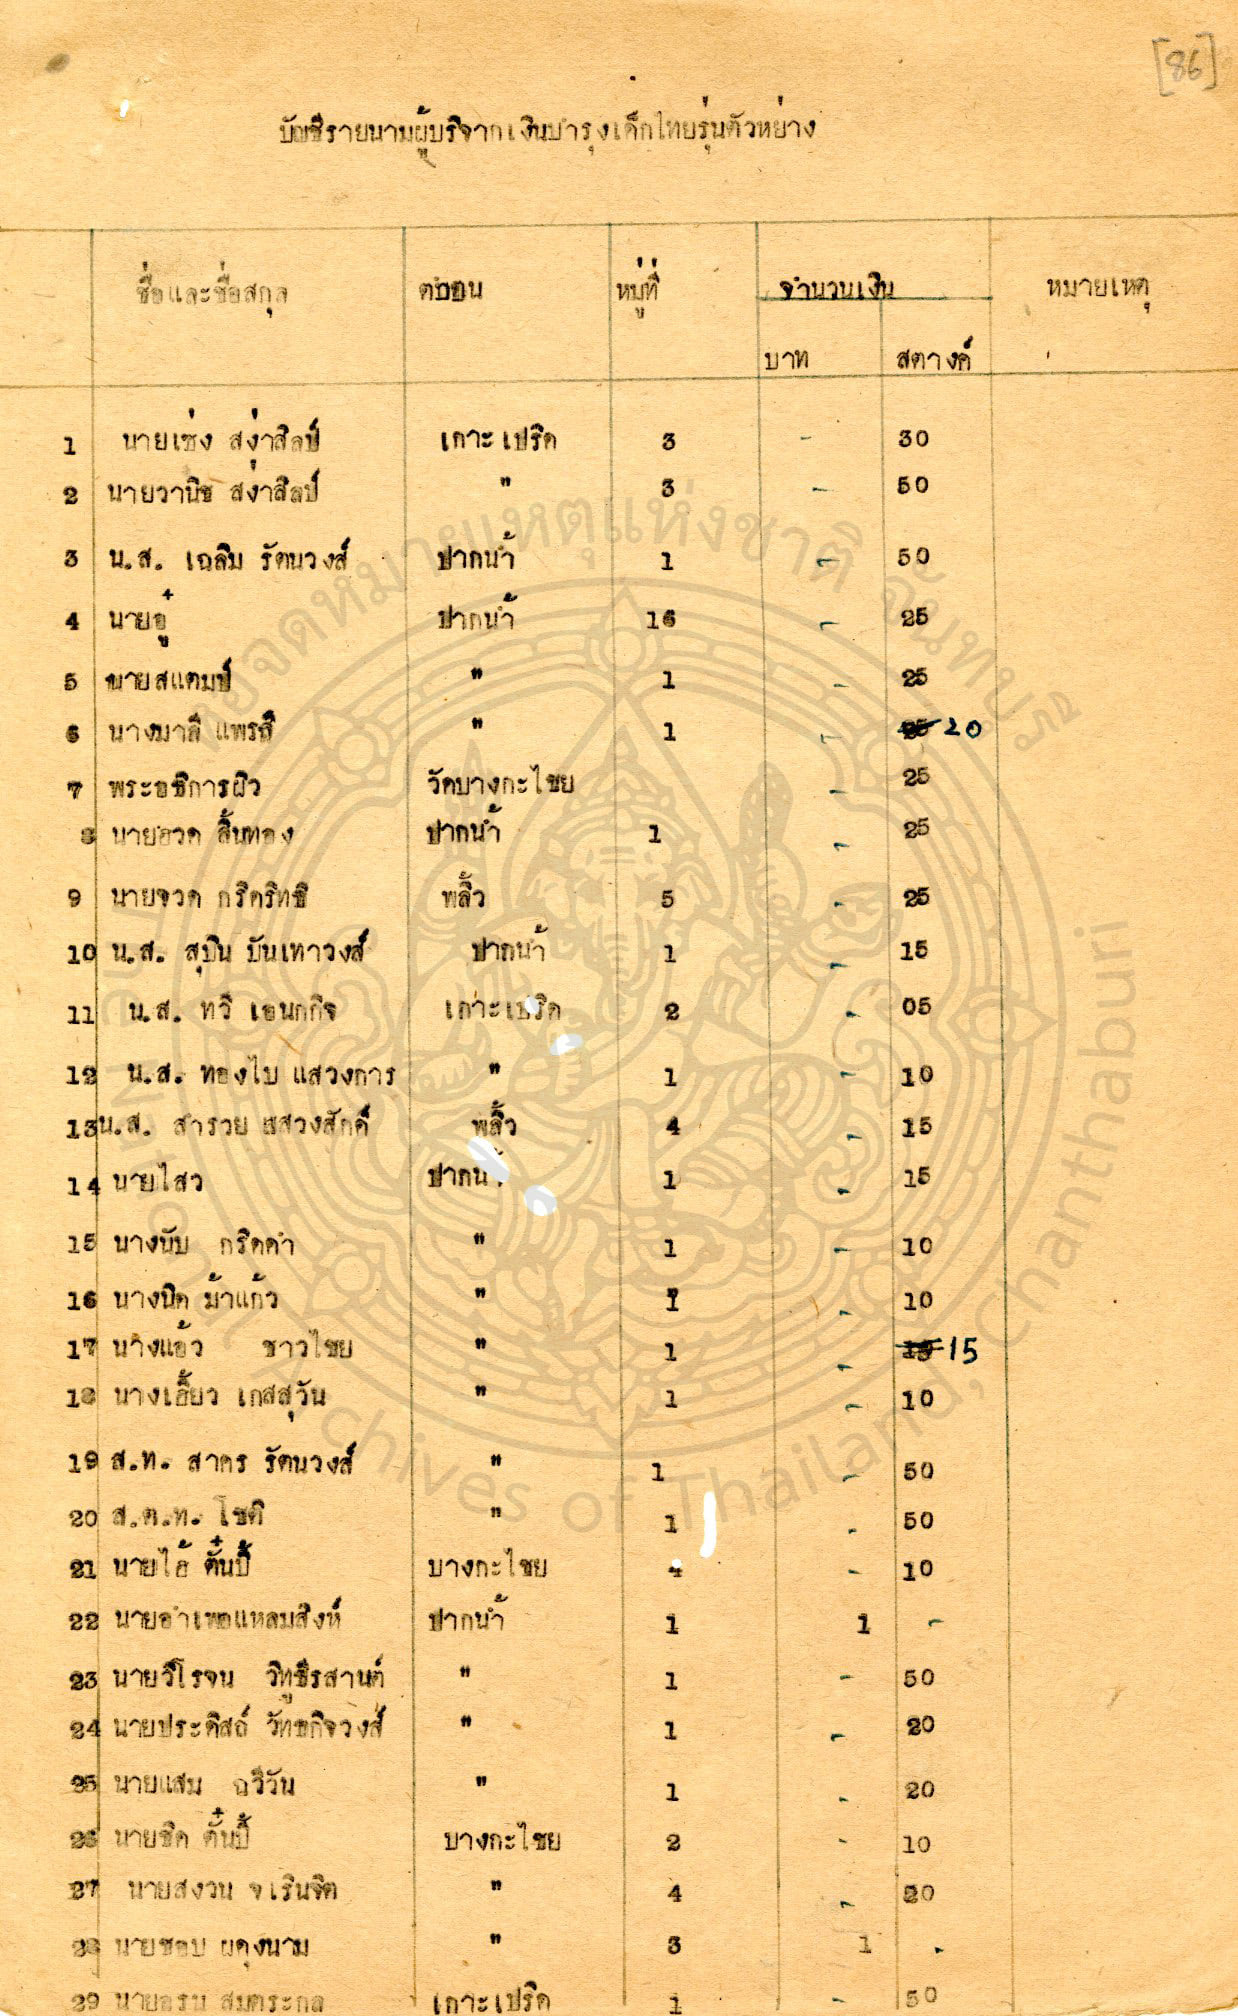 [86]
บัญชีรายนามผู้บริจากเงินบำรุงเด็กไทยรุ่นตัวหย่าง
ชื่อและชื่อสกุล ตำบน หมู่ที่ จำนวนเงิน หมายเหตุ
บาท สตางค์
1 นายเซ่ง สง่าสิลป์ เกาะเปริด 3 - 30
2 นายวานิช สง่าสิลป์ " 3 - 50
3 น.ส. เฉลิม รัตนวงส์ ปากนำ้ 1 - 50
4 นายอู๋ ปากนำ้ 16 - 25
5 นายสแตมป์ " 1 - 25
6 นางมาลี แพรสี " 1 - 25 20
7 พระอธิการผิว วัดบางกะไชย - 25
8 นายอวด สิ้นทอง ปากนำ้ 1 - 25
9 นายจวด กริดริทธิ พลิ้ว 5 - 25
10 น.ส. สุบิน บันเทาวงส์ ปากนำ้ 1 - 15
11 น.ส. ทวี เอนกกิจ เกาะเปริด 2 - 05
12 น.ส. ทองไบ แสวงการ " 1 - 10
13 น.ส. สำรวย สสวงสักดิ์ พลิ้ว 4 - 15
14 นายไสว ปากนำ้ 1 - 15
15 นางนับ กริดคำ " 1 - 10
16 นางนิด ม้าแก้ว " 1 - 10
17 นางแอ้ว ชาวไชย " 1 - 15 15
18 นางเอี้ยว เกสสุวัน " 1 - 10
19 ส.ท. สาคร รัตนวงส์ " 1 - 50
20 ส.ต.ท. โชติ " 1 - 50
21 นายไอ้ ตั๋นปี้ บางกะไชย 4 - 10
22 นายอำเพอแหลมสิงห์ ปากนำ้ 1 1 -
23 นายวิโรจน วิทูธีรสานต์ " 1 - 50
24 นายประดิสถ์ วัทธกิจวงส์ " 1 - 20
25 นายแสม ฉวีวัน " 1 - 20
26 นายชิด ตั๋นปี้ บางกะไชย 2 - 10
27 นายสงวน จเรินจิต " 4 - 20
28 นายชอบ ผดุงนาม " 3 1 -
29 นายอรุน สมุตระกูล เกาะเปริด 1 - 50
หอจดหมายเหตุแห่งชาติ จันทบุรี
National Archives of Thailand, Chanthaburi